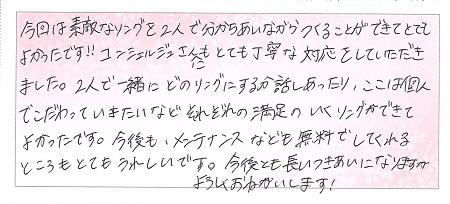 今回は素敵なリングを2人で分からあいながらつくることができてとても
よかったです!! コンシェルジュさんにもとても丁寧な対応をしていただき
ました。2人で一緒にどのリングにするか話しあったり、ここは個人
でこだわっていきたいなどそれぞれの満足のいくリングができて
よかったです。今後も、メンテナンスなども無料でしてくれる
ところもとてもうれしいです。今後とも長いつきあいになりますが
よろしくおねがいします!